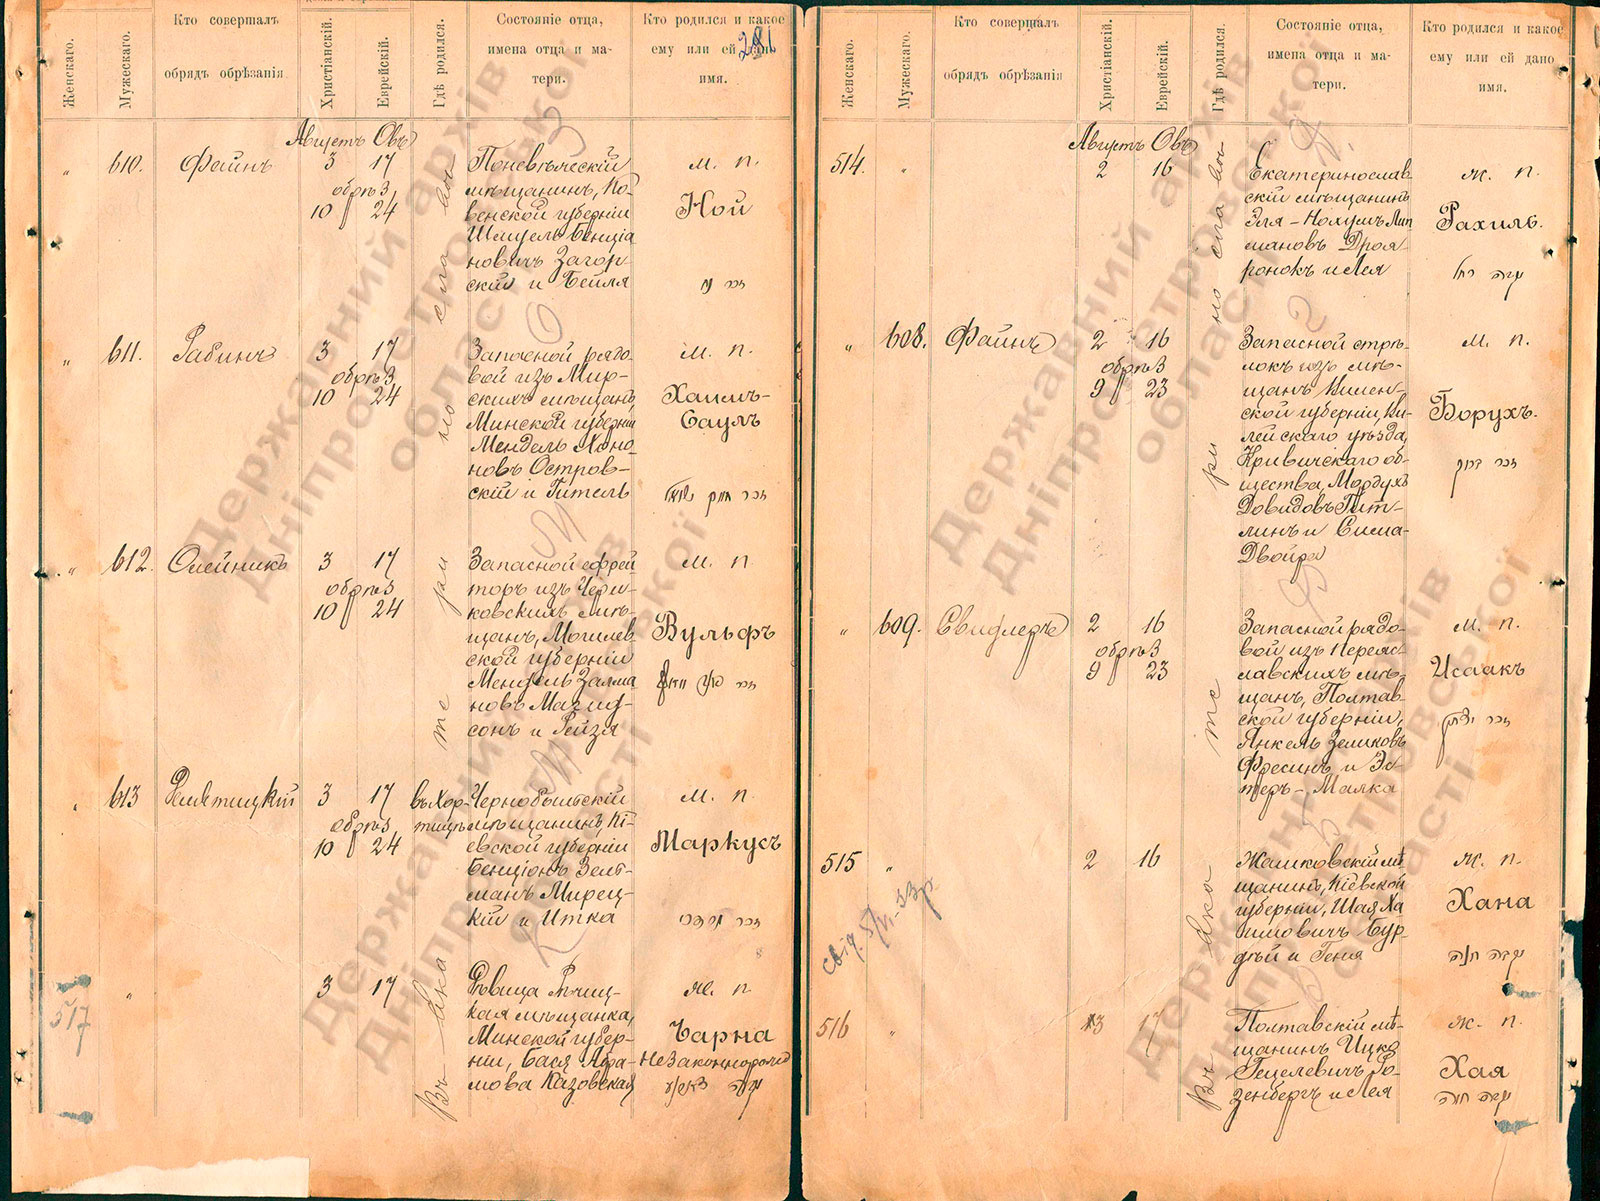 Женскаго.
Мужескаго.
Кто совершалъ
обрядъ обрѣзанія
Христіанскій.
Еврейскій.
Гдѣ родился.
Состояніе отца,
имена отца и ма-
тери.
Кто родился и какое
ему или ей дано
имя.
281
Августъ Овъ
" 610. Файнъ 3 17
обрѣз.
10 24
Поневѣжскій
мѣщанинъ, Ко-
венской губерніи
Бенціа
новичъ Загор-
скій и Бейля
м. п.
Ной
" 611. Рабинъ 3 17
обрѣз
10 24
Запасной рядо-
вой изъ Мир-
скихъ мѣщанъ,
Минской губерніи
Мендель Хоно-
новъ Остров-
скій и Гитель
м. п.
Хаимъ-
Саулъ
" 612. Олейникъ 3 17
обрѣз
10 24
Запасной ефрей
торъ изъ Чери-
ковскихъ мѣ-
щанъ, Могилев
ской губерніи
Мендель Залма
новъ Магид-
сонъ и Рейзя
м. п.
Вульфъ
" 613 3 17
обрѣз,
10 24
въ Хор-
тицѣ
Чернобыльскій
мѣщанинъ, Кі-
евской губерніи
Бенціонъ Зелт-
манъ Мирец-
кій и Итка
м. п.
Маркусъ
517 " 3 17
Дѣвица Рѣчиц-
кая мѣщанка,
Минской губер-
ніи, Бася Абра-
мова Казовская
ж. п
Чарна
Незаконнорожд
Въ Ека те ри но сла вѣ
Женскаго.
Мужескаго.
Кто совершалъ
обрядъ обрѣзанія
Христіанскій.
Еврейскій.
Гдѣ родился.
Состояніе отца,
имена отца и ма-
тери.
Кто родился и какое
ему или ей дано
имя.
Августъ Овъ
514. " 2 16
Екатеринослав-
скій мѣщанинъ
Эля-Нохумъ Лип
мановъ
и Лея
ж. п.
Рахиль.
עריה רחל
" 608. Файнъ 2 16
обрѣз
9 23
Запасной стрѣ-
локъ изъ мѣ-
щанъ Вилен-
ской губерніи, Ви-
лейскаго уѣзда,
Кривичскаго об-
щества, Мордухъ
Довидовъ Гит-
линъ и Сима-
Двойра
м. п.
Борухъ.
זכר ברוך
" 609. Свидлеръ 2 16
обрѣз
9 23
Запасной рядо-
вой изъ Переяс-
лавскихъ мѣ-
щанъ, Полтав-
ской губерніи,
Янкель Зеликовъ
Фресинъ и Эс-
теръ-Малка
м. п.
Исаакъ
זכר יצחק
515 " 2 16
Жашковскій мѣ
щанинъ, Кіевской
губерніи, Шая Ха
имовичъ Бур-
дѣй и Геня
ж. п.
Хана
516 " 3 17
Полтавскій мѣ-
щанинъ Ицко
Гецелевичъ Ро-
зенбергъ и Лея
ж. п.
Хая
Въ Ека те ри но сла вѣ
Державний архів
Дніпропетровської
області